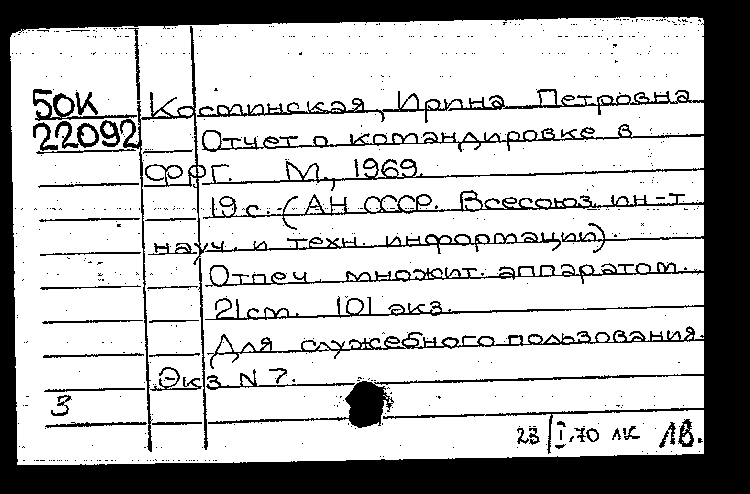 50К Костинская, Ирина Петровна
22092 Отчет о командировке в
ФРГ. М., 1969.
19 с. (АН СССР. Всесоюз. ин-т
науч. и техн. информации).
Отпеч. множит. аппаратом.
21 см. 101 экз.
Для служебного пользования.
Экз N 7.
3
23/I.70 ЛК 1В.